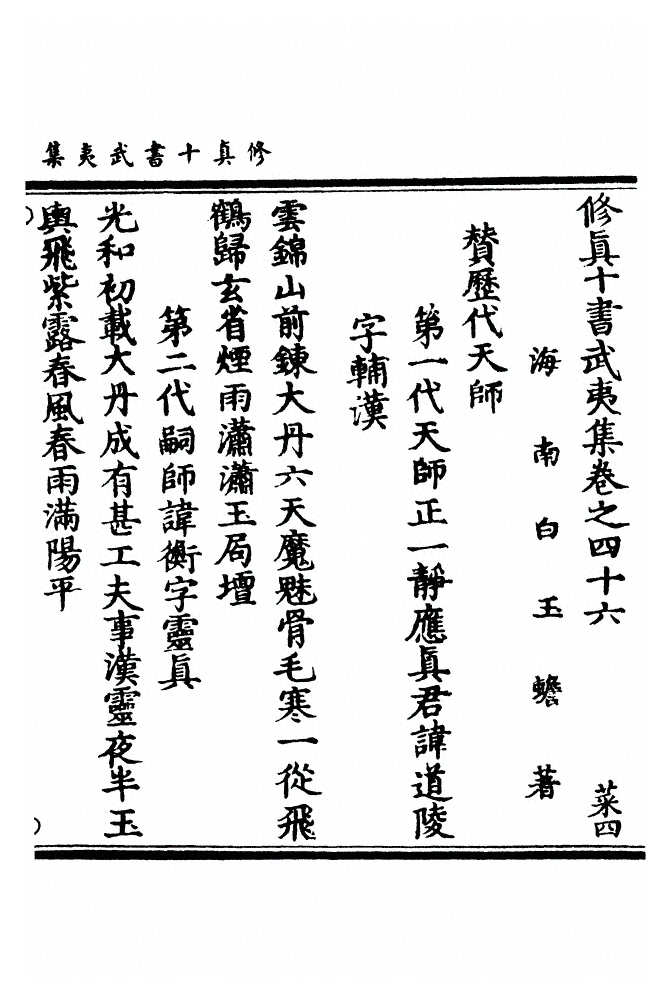 修真十書武夷集
修眞十書武夷集卷之四十六 菜四
海南白玉蟾著
賛歷代天師
第一代天師正一靜應眞君諱道陵
字輔漢
雲錦山前鍊大丹六天魔魅骨毛寒一從飛
鶴歸玄省煙雨瀟瀟玉局壇
第二代嗣師諱衡字靈眞
光和初載大丹成有甚工夫事漢靈夜半玉
輿飛紫露春風春雨滿陽平